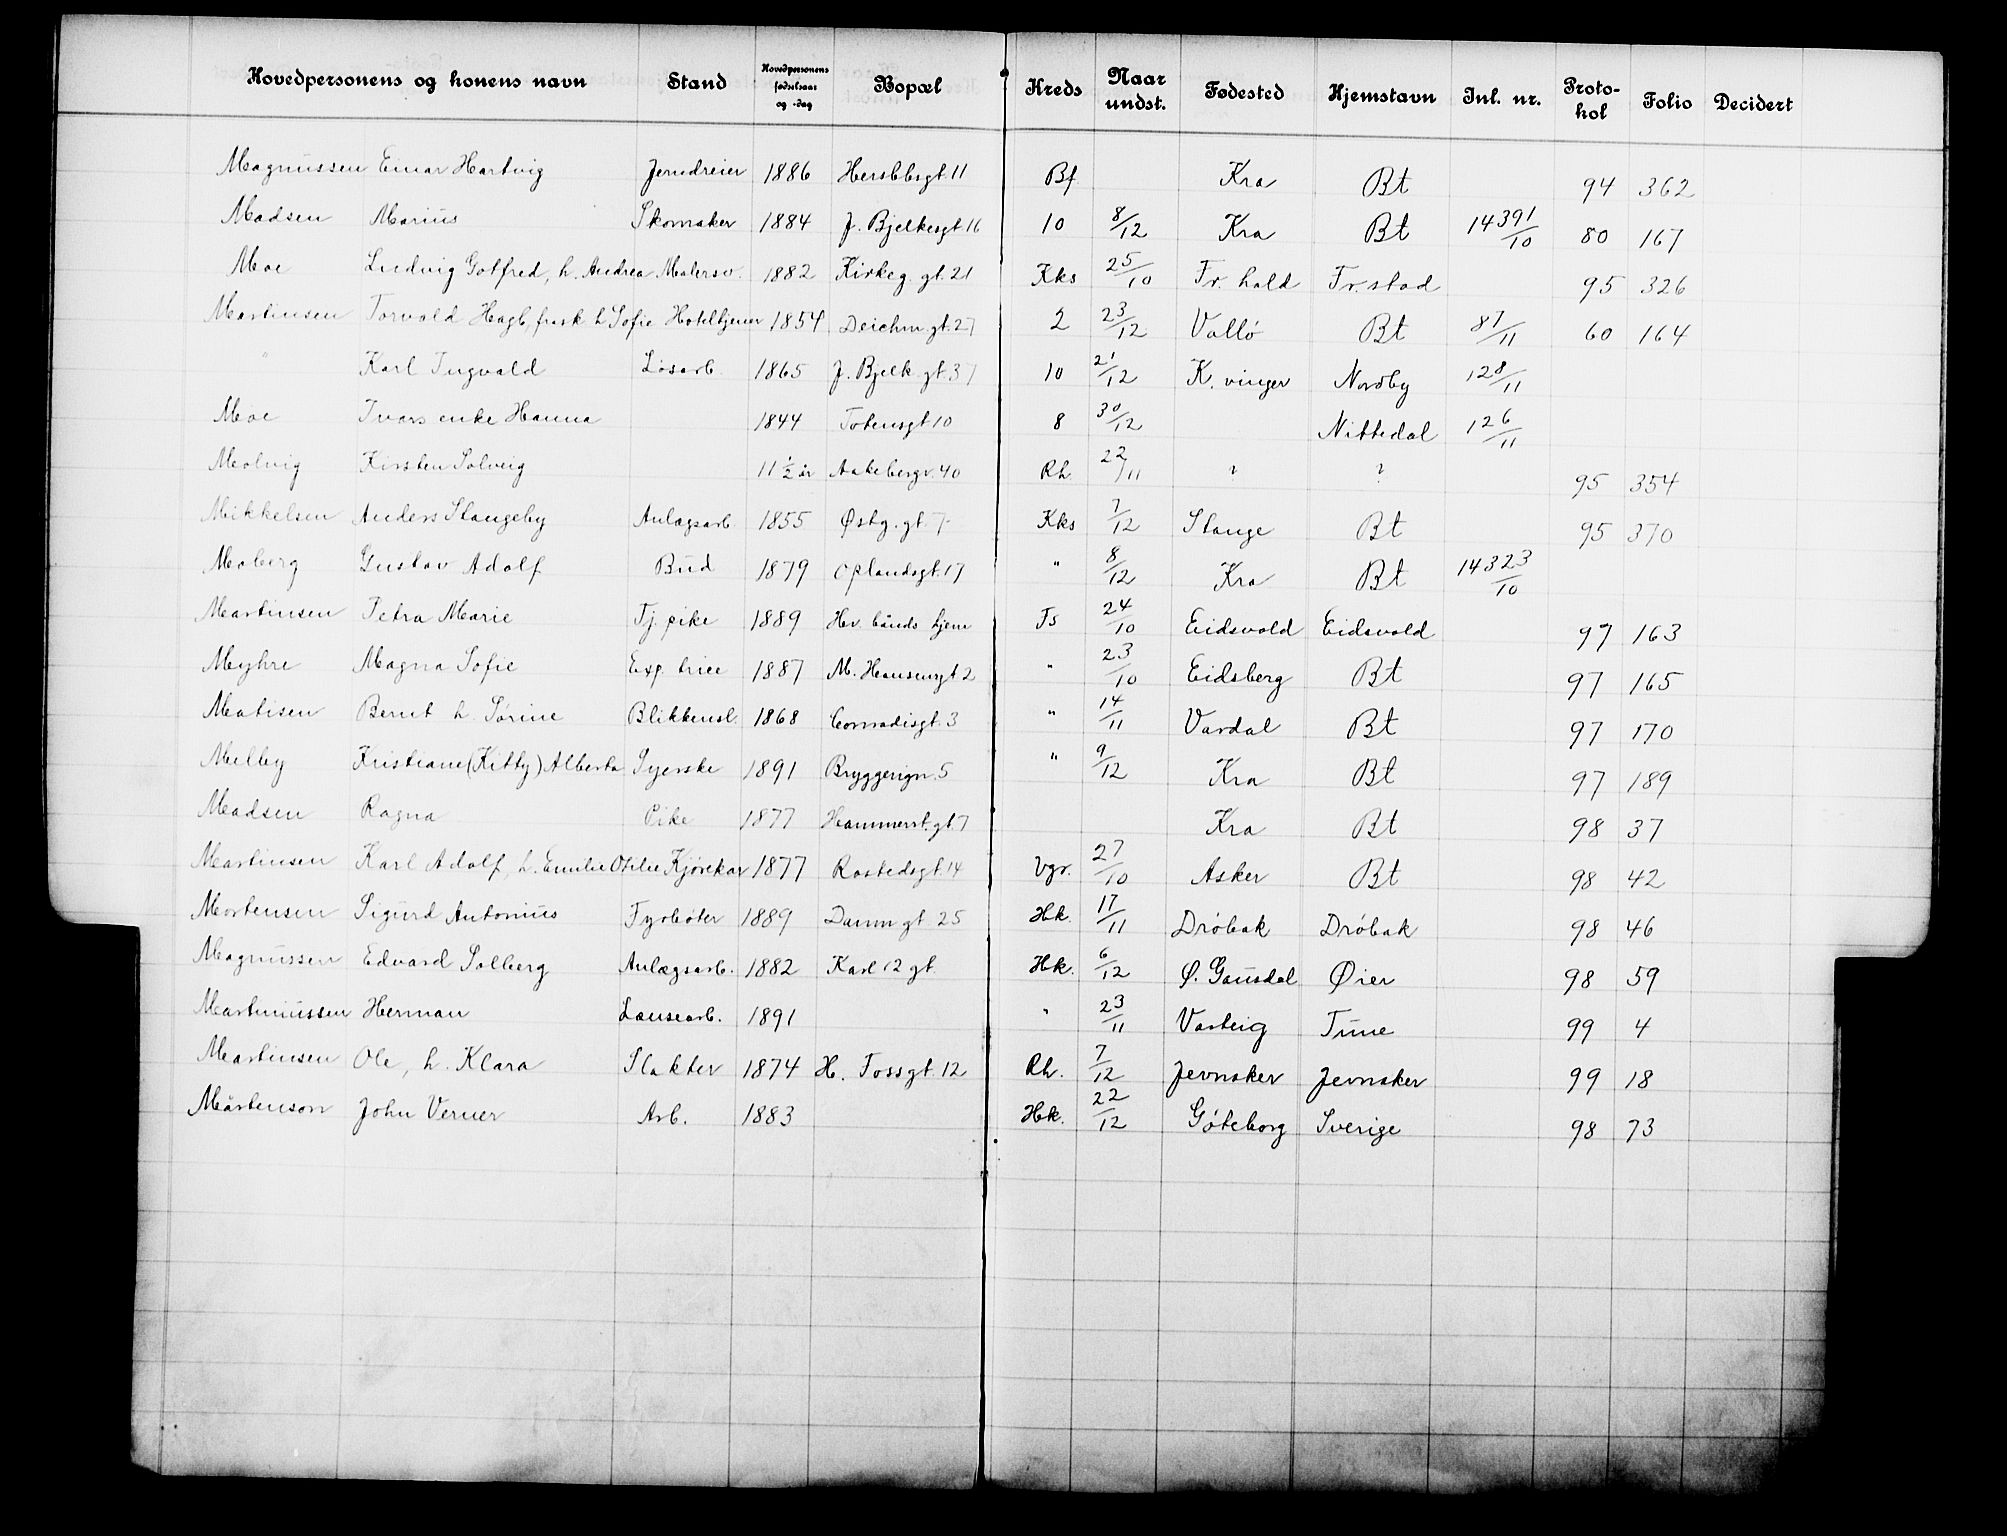 Hovedpersonens og konens navn Stand Hovedpersonens fødselsaar og -dag Bopæl Kreds Naar undst. Fødested Hjemstavn Inl. nr. Protokol Folio Decidert
Magnussen Einar Hartvig Jerndreier 1886 Herslebsgt. 11 Bf. Kra Bt 94 362
Madsen Marius Skomaker 1884 J. Bjelkesgt. 16 10 8/12 Kra Bt 14391/10 80 167
Moe Ludvig Gotfred, h. Andrea Malersv. 1882 Kirkeg. gt. 21 Kks 25/10 Fr. hald Fr. stad 95 326
Martinsen Torvald Hagb. h Sofie Hoteltjener 1854 Deichm. gt. 27 2 23/12 Vallö Bt 87/11 60 164
" Karl Ingvald Løsarb. 1865 J. Bjelk. gt. 37 10 21/12 K. vinger Nordby 128/11
Moe Ivars enke Hanna 1844 Totensgt 10 8 30/12 Nittedal 126/11
Molvig Kirsten Solveig 11 1/2 år Aakebergv. 40 Rh 22/11 ? ? 95 354
Mikkelsen Anders Stangeby Anlægsarb. 1855 Østg. gt. 7 Kks 7/12 Stange Bt 95 370
Moberg Gustav Adolf Bud 1879 Oplandsgt. 17 " 8/12 Kra Bt 14323/10
Martinsen Petra Marie Tj. pike 1889 Hv. bånds hjem Fs 24/10 Eidsvold Eidsvold 97 163
Myhre Magna Sofie Exp. trice 1887 M. Hansensgt 2 " 23/10 Eidsberg Bt 97 165
Matisen Bernt h. Sørine Blikkensl. 1868 Conradisgt. 3 " 14/11 Vardal Bt 97 170
Melby Kristiane (Kitty) Alberta Syerske 1891 Bryggerign. 5 " 9/12 Kra Bt 97 189
Madsen Ragna Pike 1877 Hammerst. gt. 7 Kra Bt 98 37
Martinsen Karl Adolf, h. Emilie Otilie Kjørekar 1877 Rostedsgt. 14 Vgr. 27/10 Asker Bt 98 42
Mortensen Sigurd Antonius Fyrbøter 1889 Danm gt. 25 Hk. 17/11 Dröbak Dröbak 98 46
Magnussen Edvard Solberg Anlægsarb. 1882 Karl 12 gt. Hk. 6/12 Ø. Gausdal Øier 98 59
Martiniussen Herman Lausearb. 1891 " 23/11 Varteig Tune 99 4
Martinsen Ole, h. Klara Slakter 1874 H. Fossgt. 12 Rh. 7/12 Jevnaker Jevnaker 99 18
Mårtenson John Verner Arb. 1883 Hk. 22/12 Göteborg Sverige 98 73